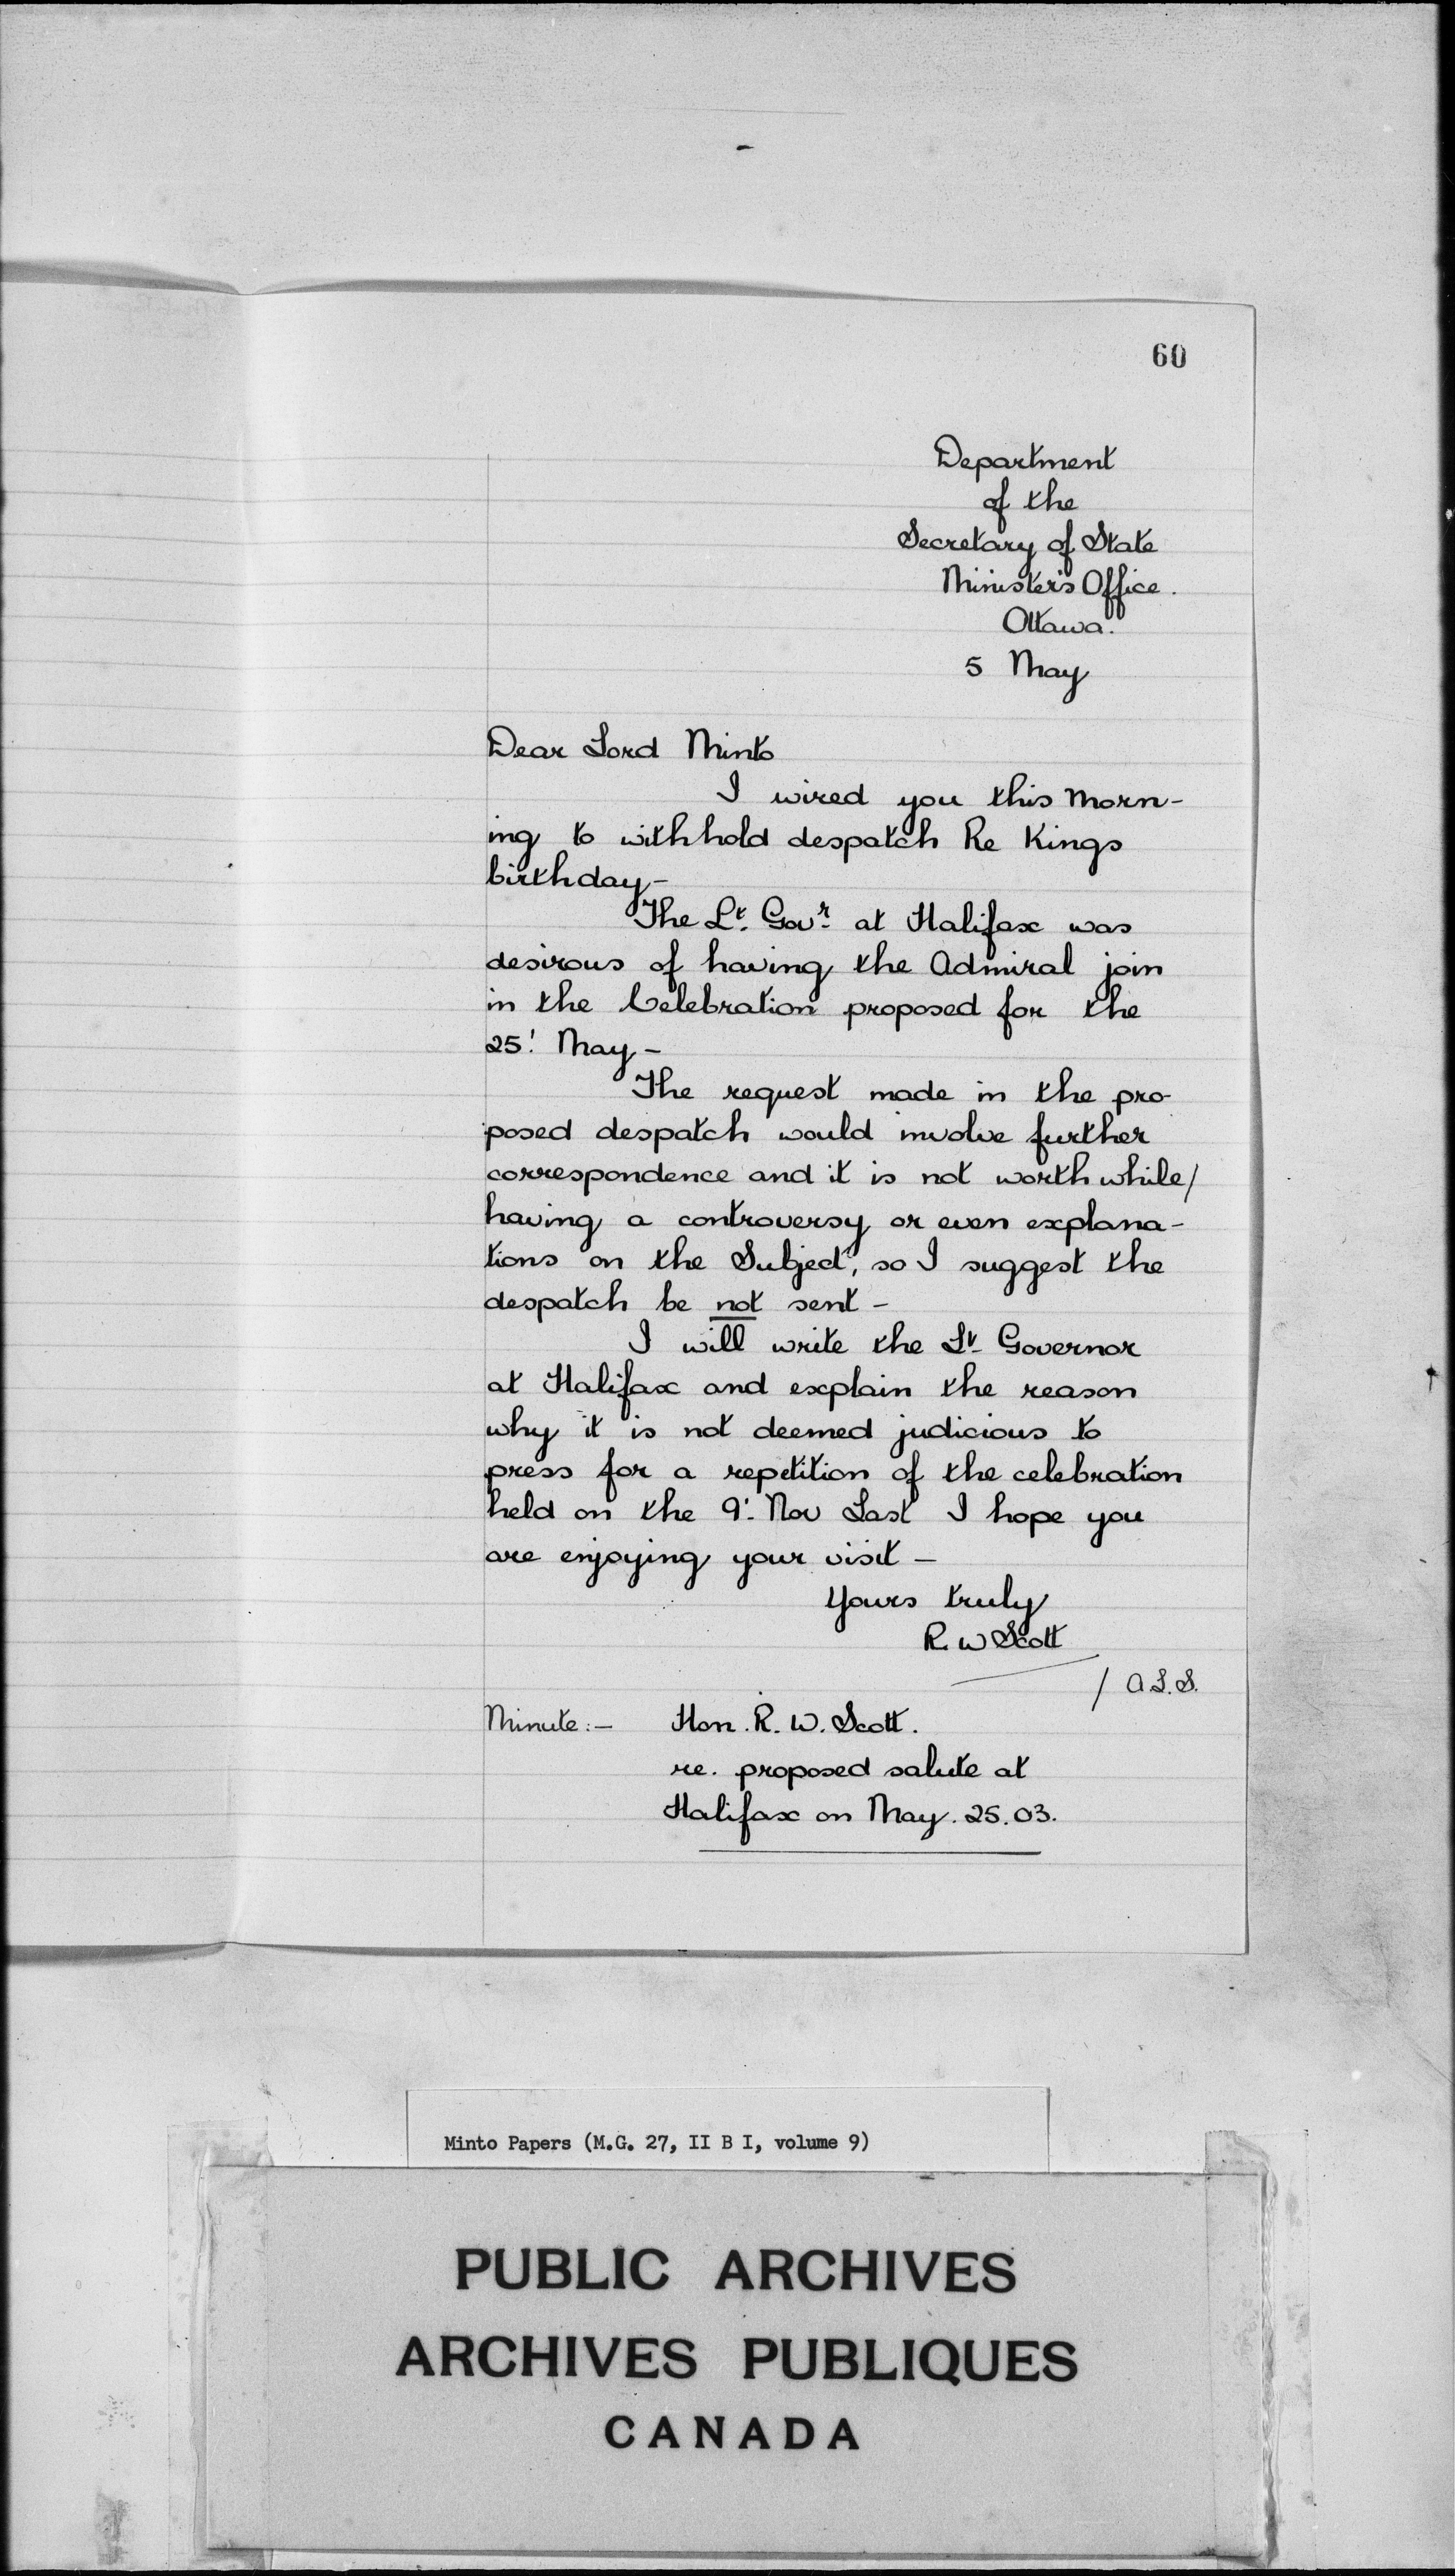 60
Department
of the
Secretary of State
Minister's Office.
Ottawa.
5 May
Dear Lord Minto
I wired you this morn-
ing to withhold despatch Re Kings
birthday-
The Lt. Govr. at Halifax was
desirous of having the Admiral join
in the Celebration proposed for the
25' May -
The request made in the pro-
posed despatch would involve further
correspondence and it is not worth while/
having a controversy or even explana-
tions on the Subject, so I suggest the
despatch be not sent -
I will write the Lt- Governor
at Halifax and explain the reason
why it is not deemed judicious to
press for a repetition of the celebration
held on the 9'. Nov Last I hope you
are enjoying your visit -
Yours truly
R. W Scott
/ A.L.S.
Minute:- Hon. R. W. Scott.
re. proposed salute at
Halifax on May. 25. 03.
Minto Papers (M.G. 27, II B I, volume 9)
PUBLIC ARCHIVES
ARCHIVES PUBLIQUES
CANADA